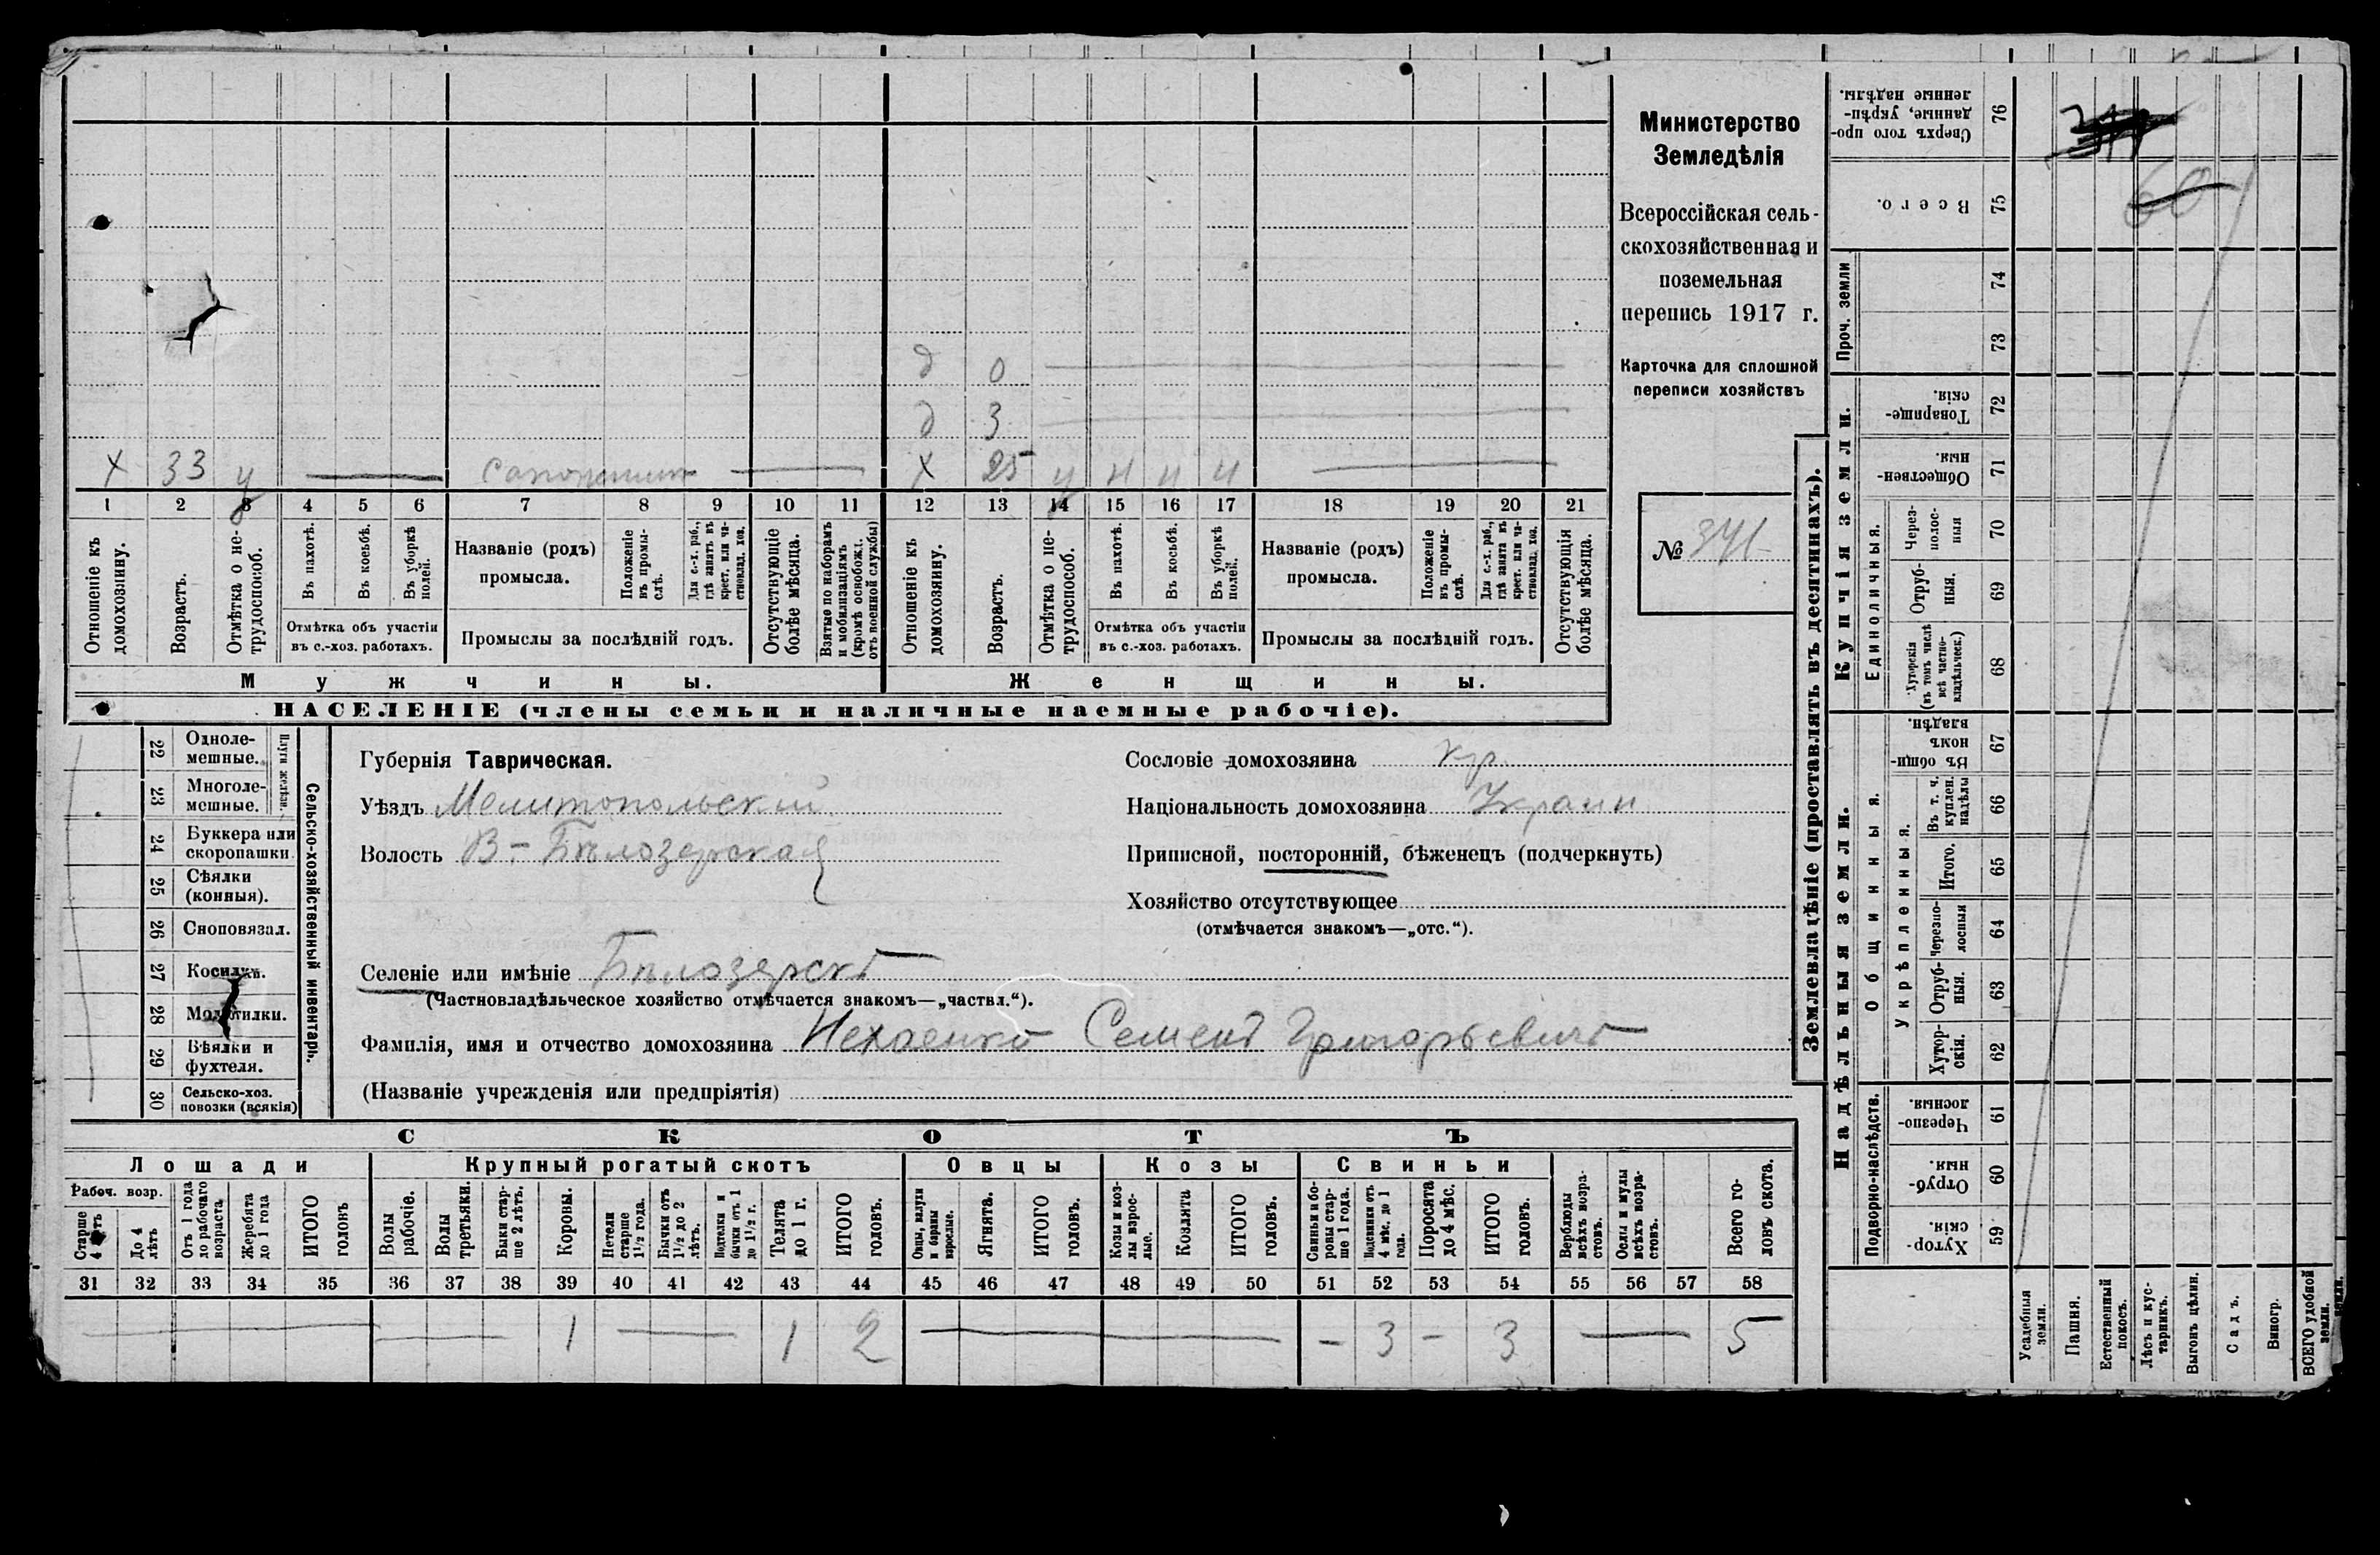 Министерство
Земледѣлія
Всероссійская сель-
скохозяйственная и
поземельная
перепись 1917 г.
Карточка для сплошной
переписи хозяйствъ
№ 341
д 0
д 3
х 33 у сапожник х 25 у н н н
1 2 3 4 5 6 7 8 9 10 11 12 13 14 15 16 17 18 19 20 21
Отношеніе къ домохозяину.
Возрастъ.
Отмѣтка о не-трудоспособ.
Въ пахотѣ.
Въ косьбѣ.
Въ уборкѣ полей.
Отмѣтка объ участіи
въ с.-хоз. работахъ.
Названіе (родъ)
промысла.
Положеніе въ промы-слѣ.
Для с.-х. раб., гдѣ занятъ въ крест. или ча-стновлад. хоз.
Промыслы за послѣдній годъ.
Отсутствующіе болѣе мѣсяца.
Взятые по наборамъ и мобилизаціямъ (кромѣ освобожд. отъ военной службы)
Отношеніе къ домохозяину.
Возрастъ.
Отмѣтка о не-трудоспособ.
Въ пахотѣ.
Въ косьбѣ.
Въ уборкѣ полей.
Отмѣтка объ участіи
въ с.-хоз. работахъ.
Названіе (родъ)
промысла.
Положеніе въ промы-слѣ.
Для с.-х. раб., гдѣ занята въ крест. или ча-стновлад. хоз.
Промыслы за послѣдній годъ.
Отсутствующія болѣе мѣсяца.
Мужчины. Женщины.
НАСЕЛЕНІЕ (члены семьи и наличные наемные рабочіе).
22 Одноле-мешные.
23 Многоле-мешные.
Плуги желѣзн.
24 Буккера или скоропашки
25 Сѣялки (конныя).
26 Сноповязал.
27 Косилки.
28 Молотилки.
29 Вѣялки и фухтеля.
30 Сельско-хоз. повозки (всякія)
Сельско-хозяйственный инвентарь.
Губернія Таврическая.
Уѣздъ Мелитопольскій
Волость В-Бѣлозерская
Селеніе или имѣніе Бѣлозерскъ
(Частновладѣльческое хозяйство отмѣчается знакомъ—„частвл.“).
Фамилія, имя и отчество домохозяина Нехаенко Семенъ Григорьевичъ
(Названіе учрежденія или предпріятія)
Сословіе домохозяина кр.
Національность домохозяина Украин
Приписной, посторонній, бѣженецъ (подчеркнуть)
Хозяйство отсутствующее
(отмѣчается знакомъ—„отс.“).
СКОТЪ
Лошади Крупный рогатый скотъ Овцы Козы Свиньи
Рабоч. возр.
Старше 4 лѣтъ
До 4 лѣтъ
Отъ 1 года до рабочаго возраста
Жеребята до 1 года
ИТОГО головъ
Волы рабочіе.
Волы третьяки.
Быки стар-ше 2 лѣтъ.
Коровы.
Нетели старше 1½ года.
Бычки отъ 1½ до 2 лѣтъ.
Подтелки и бычки отъ 1 до 1½ г.
Телята до 1 г.
ИТОГО головъ.
Овцы, валухи и бараны взрослые.
Ягнята.
ИТОГО головъ.
Козы и коз-лы взрос-лые.
Козлята
ИТОГО головъ.
Свиньи и бо-ровы стар-ше 1 года.
Подсвинки отъ 4 мѣс. до 1 года.
Поросята до 4 мѣс.
ИТОГО головъ.
Верблюды всѣхъ возра-стовъ.
Ослы и мулы всѣхъ возра-стовъ.
Всего го-ловъ скота.
31 32 33 34 35 36 37 38 39 40 41 42 43 44 45 46 47 48 49 50 51 52 53 54 55 56 57 58
1 1 2 - 3 - 3 5
Землевладѣніе (проставлять въ десятинахъ).
Надѣльныя земли. Купчія земли. Проч. земли
Подворно-наслѣдств.
Общинныя.
Укрѣпленныя.
Единоличныя.
76 Сверхъ того про-данные, укрѣп-ленные надѣлы.
75 Всего.
74
73
72 Товарище-скія.
71 Обществен-ныя.
70 Через-полос-ныя
69 Отруб-ныя.
68 Хуторскія (въ томъ числѣ всѣ частно-владѣльческ.)
67 Въ общин-номъ владѣн.
66 Въ т. ч. куплен. надѣлы
65 Итого.
64 Черезпо-лосныя
63 Отруб-ныя.
62 Хутор-скія.
61 Черезпо-лосныя.
60 Отруб-ныя.
59 Хутор-скія.
Усадебныя земли.
Пашня.
Естественный покосъ.
Лѣсъ и кус-тарникъ.
Выгонъ цѣлин.
Садъ.
Виногр.
ВСЕГО удобной земли.
60